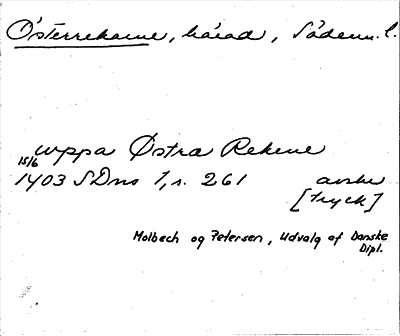 Österrekarne, härad, Söderm. l.
uppa Østra Rekene
15/6
1403 SDns 1, s. 261 avskr
[tryck]
Molbech og Petersen, Udvalg af Danske
Dipl.